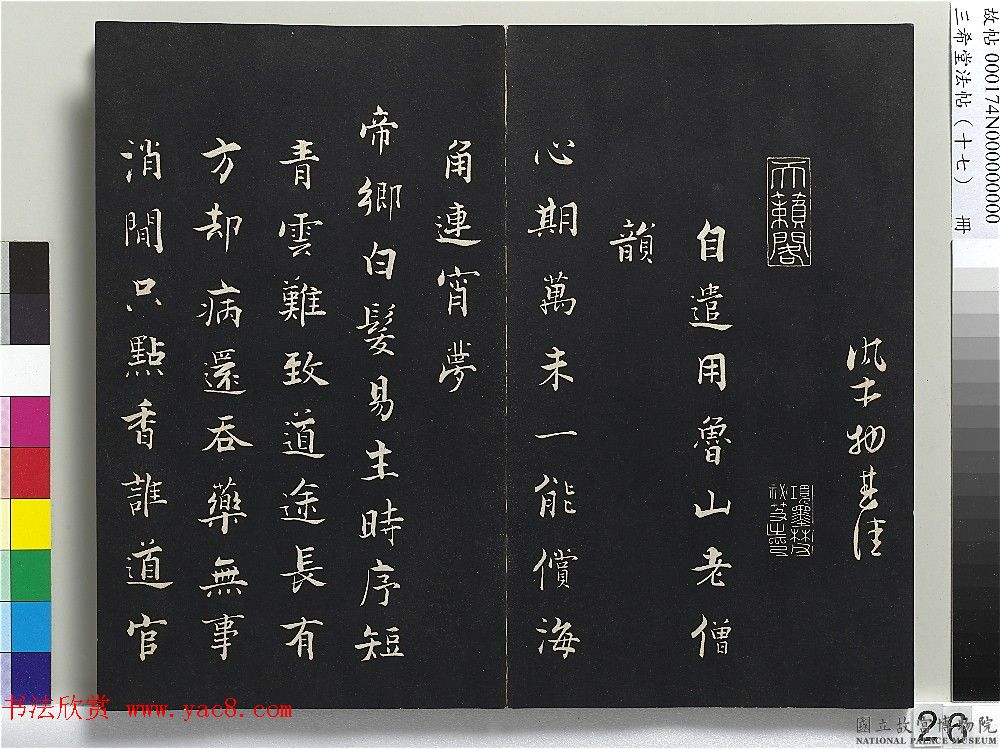 故帖 000174N000000000
三希堂法帖（十七） 冊
天籟閣
自遣用魯山老僧
韻
心期萬未一能償海
角連宵夢
帝鄉白髮易生時序短
青雲難致道途長有
方却病還吞藥無事
消閒只點香誰道官
书法欣赏 www.yac8.com
26
國立故宮博物院
NATIONAL PALACE MUSEUM